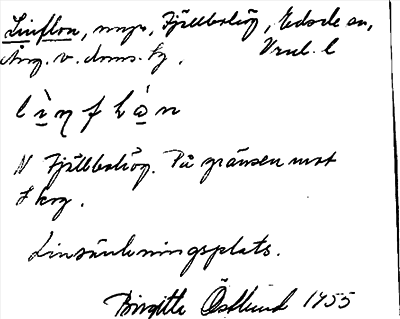 Linflon, myr, Fjällbohög, Edsele sn,
Ång. v. doms. tg. Vrul. l
lìnflòn
N Fjällbohög. På gränsen mot
Skog.
Linsänkningsplats.
Birgitta Östlund 1955